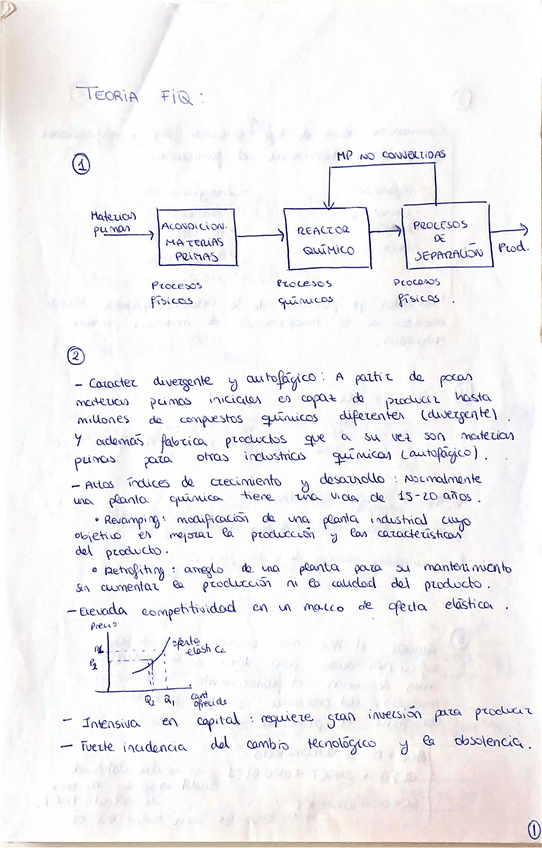 TEORIA FIQ:
①
MP NO CONVERTIDAS
Materias
primas
ACONDICION.
MATERIAS
PRIMAS
REACTOR
QUÍMICO
PROCESOS
DE
SEPARACIÓN
Prod.
Procesos
físicos
Procesos
químicos
Procesos
físicos.
②
- Caracter divergente y autofágico: A partir de pocas
materias primas iniciales es capaz de producir hasta
millones de compuestos químicos diferentes (divergente).
Y además fabrica productos que a su vez son materias
primas para otras industrias químicas (autofágico).
- Altos índices de crecimiento y desarrollo: Normalmente
una planta química tiene una vida de 15-20 años.
• Revamping: modificación de una planta industrial cuyo
objetivo es mejorar la producción y las características
del producto.
• Retrofiting: arreglo de una planta para su mantenimiento
sin aumentar la producción ni la calidad del producto.
- Elevada competitividad en un marco de oferta elástica.
Precio
oferta
elástica
P1
P2
Q2 Q1
cant
ofrecida
- Intensiva en capital: requiere gran inversión para producir
- Fuerte incidencia del cambio tecnológico y la obsolencia.
①